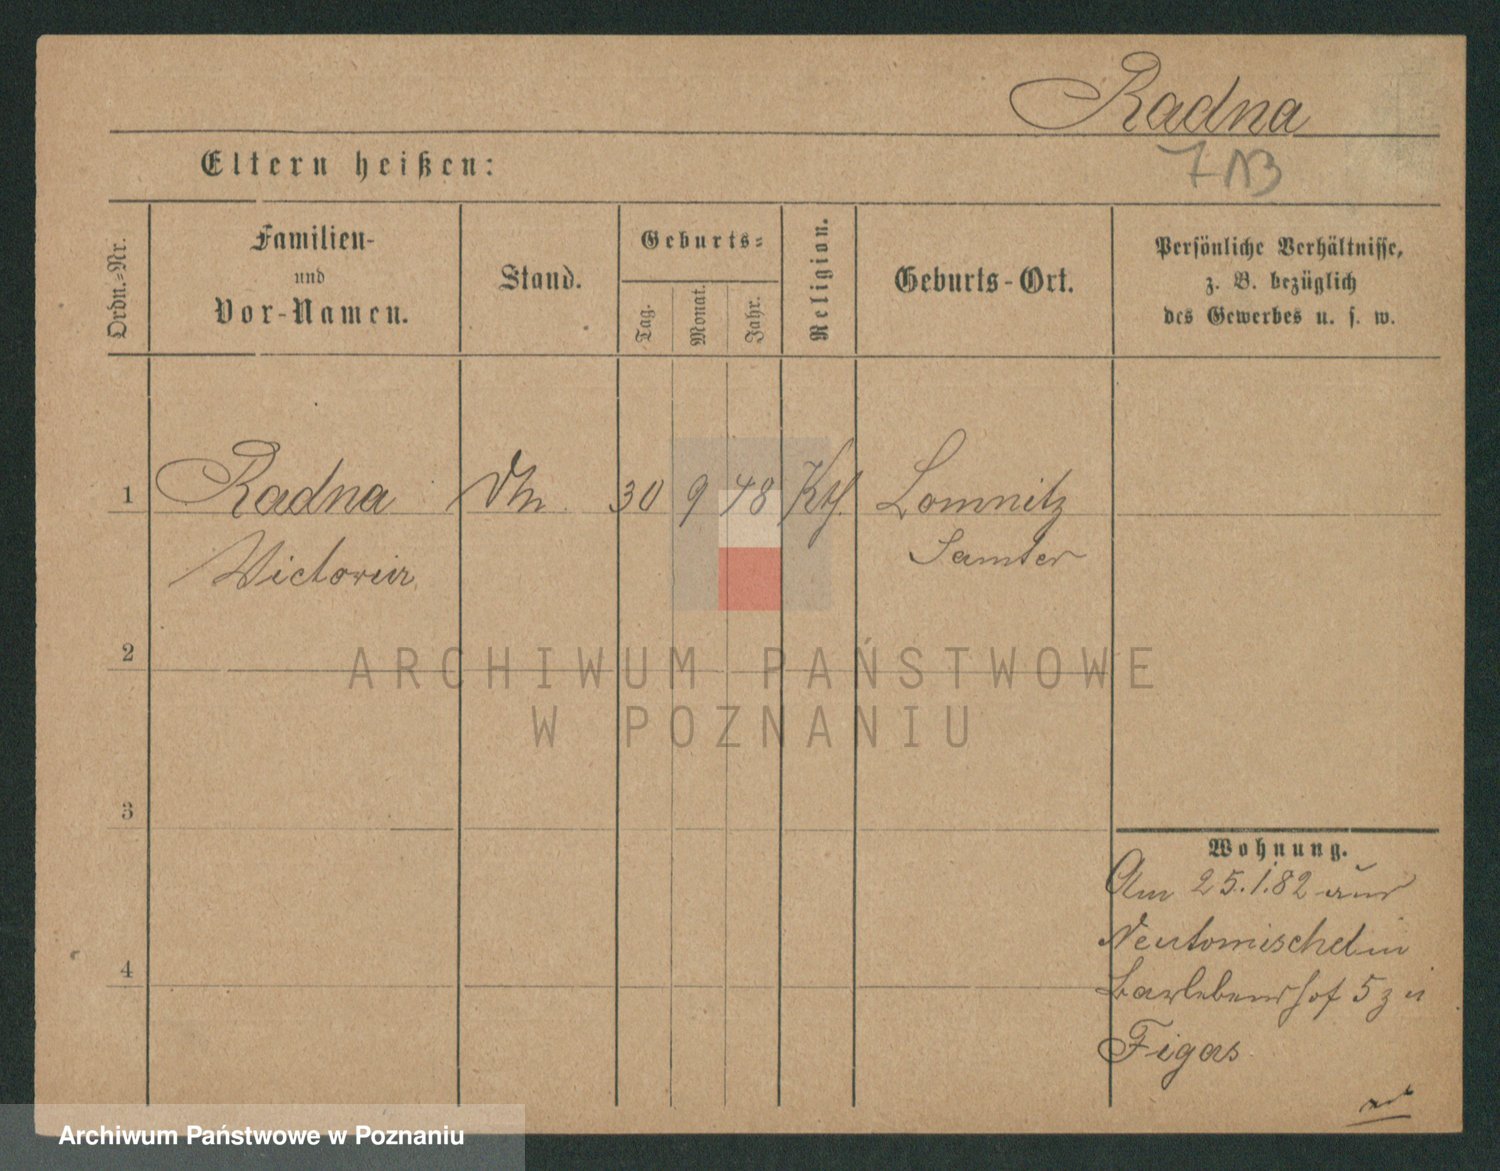 Radna
Eltern heißen:
Ordn.-Nr.
Familien-
und
Vor-Namen.
Stand.
Geburts-
Tag.
Monat.
Jahr.
Religion.
Geburts-Ort.
Persönliche Verhältnisse,
z. B. bezüglich
des Gewerbes u. s. w.
1 Radna 30 9 48 Kth. Lomnitz
Victoria Samter
2
ARCHIWUM PAŃSTWOWE
W POZNANIU
3
Wohnung.
Am 25.1.82 aus
Neutomischel in
5 zu
4
Figas
Archiwum Państwowe w Poznaniu